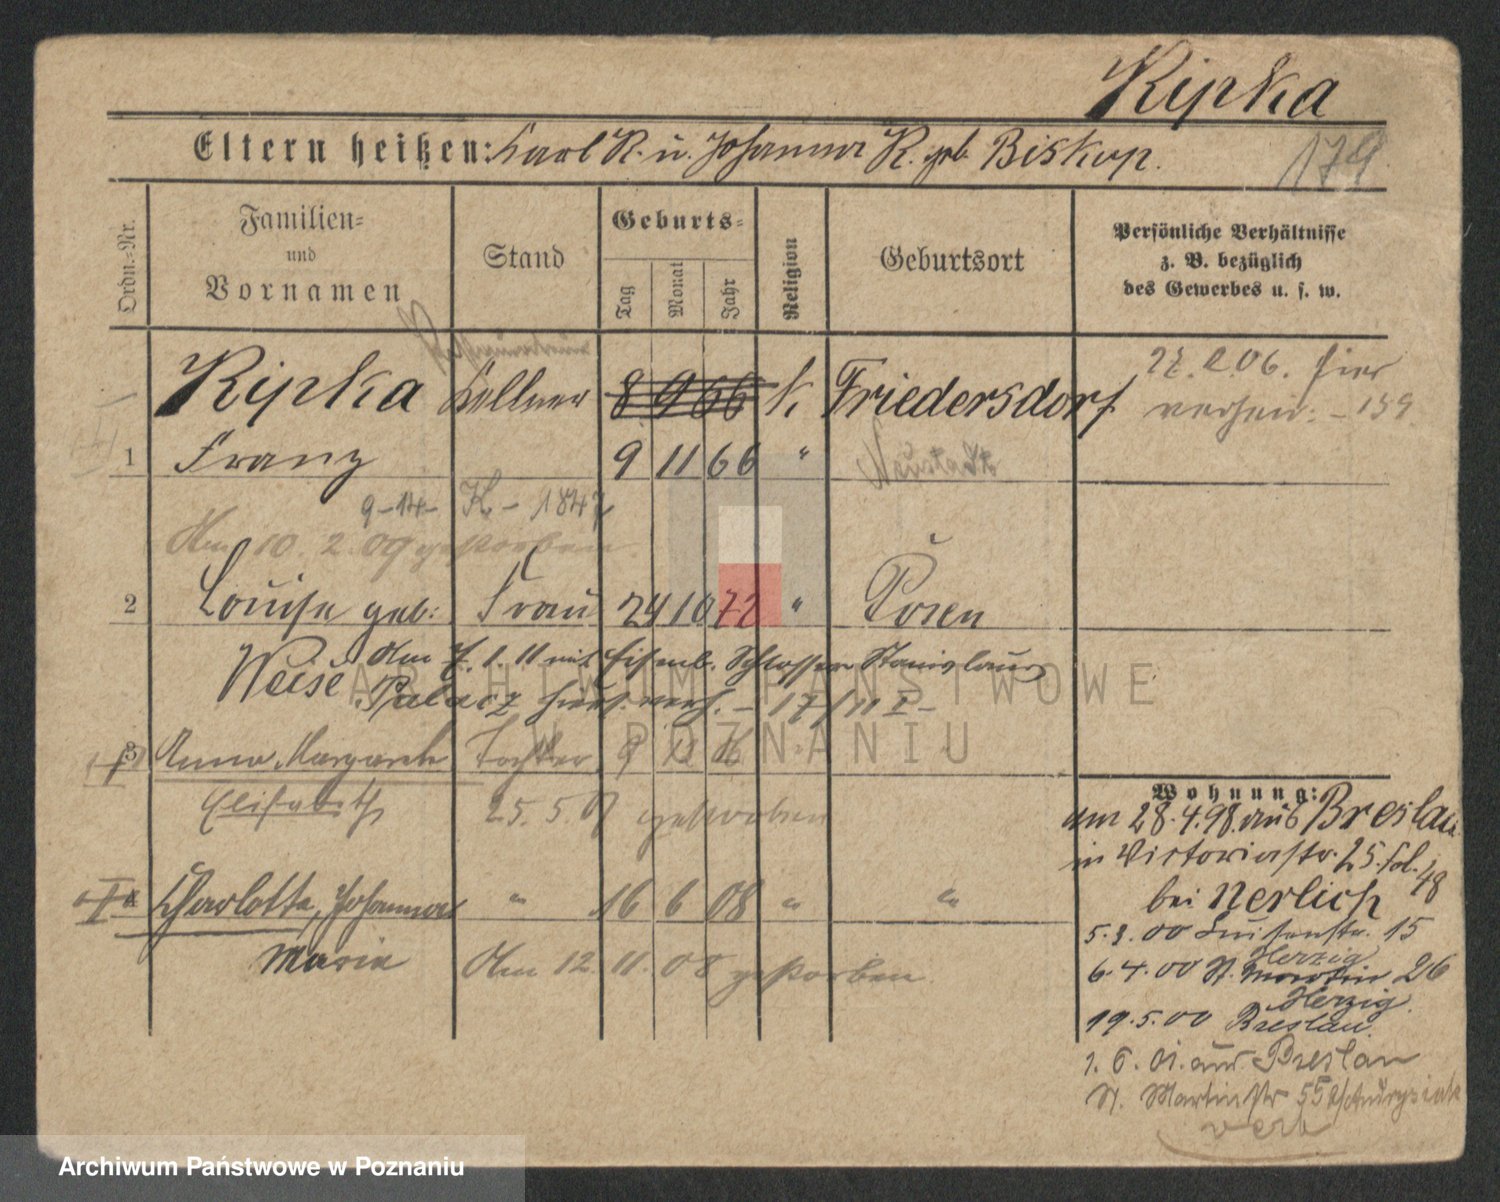 Ripka
Eltern heißen: Karl R. u. Johanna R. geb. Biskup.
179
Ordn.-Nr.
Familien-
und
Vornamen
Stand
Geburts-
Tag
Monat
Jahr
Religion
Geburtsort
Persönliche Verhältnisse
z. B. bezüglich
des Gewerbes u. s. w.
Ripka Kellner 8 9 66 k. Friedersdorf
27. 2. 06. hier
verheir. - 159
1 Franz 9 11 66 " Neustadt
9-14- K - 1847
Am 10. 2. 09 gestorben.
2 Louise geb: Frau 24 10 72 " Posen
Weise Am 7. 1. 11 mit Eisenb. Schlosser Stanislaus
Palacz hier verh. - 17/11 I -
3 Anna Margarete Tochter
Elisabeth 25. 5. 07 gestorben
Charlotte, Johanna " 16 6 08 " "
Marie Am 12. 11. 08 gestorben.
Wohnung:
am 28.4.98. aus Breslau
in Victoriastr. 25. fol. 48
bei Nerlich
5.3.00 Luisenstr. 15
Herzig
6.4.00 St. Martin 26
Herzig.
19.5.00 Breslau.
1. 6. 01. aus Breslau
St. Martinstr 55
verb
ARCHIWUM PAŃSTWOWE
W POZNANIU
Archiwum Państwowe w Poznaniu